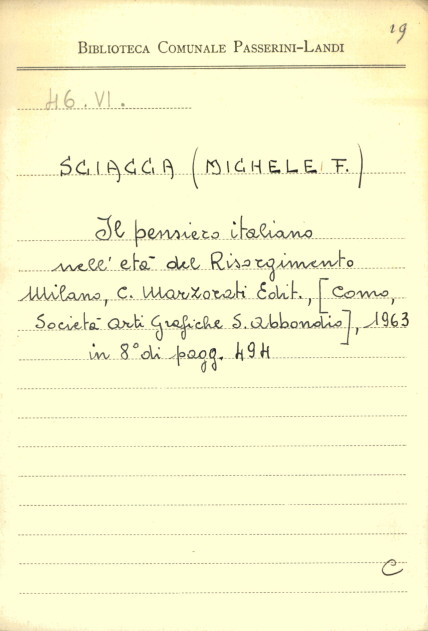 19
BIBLIOTECA COMUNALE PASSERINI-LANDI
46.VI.
SCIACCA (MICHELE F.)
Il pensiero italiano
nell'età del Risorgimento
Milano, C. Marzorati Edit., [Como,
Società Arti Grafiche S. Abbondio], 1963
in 8° di pagg. 494
C